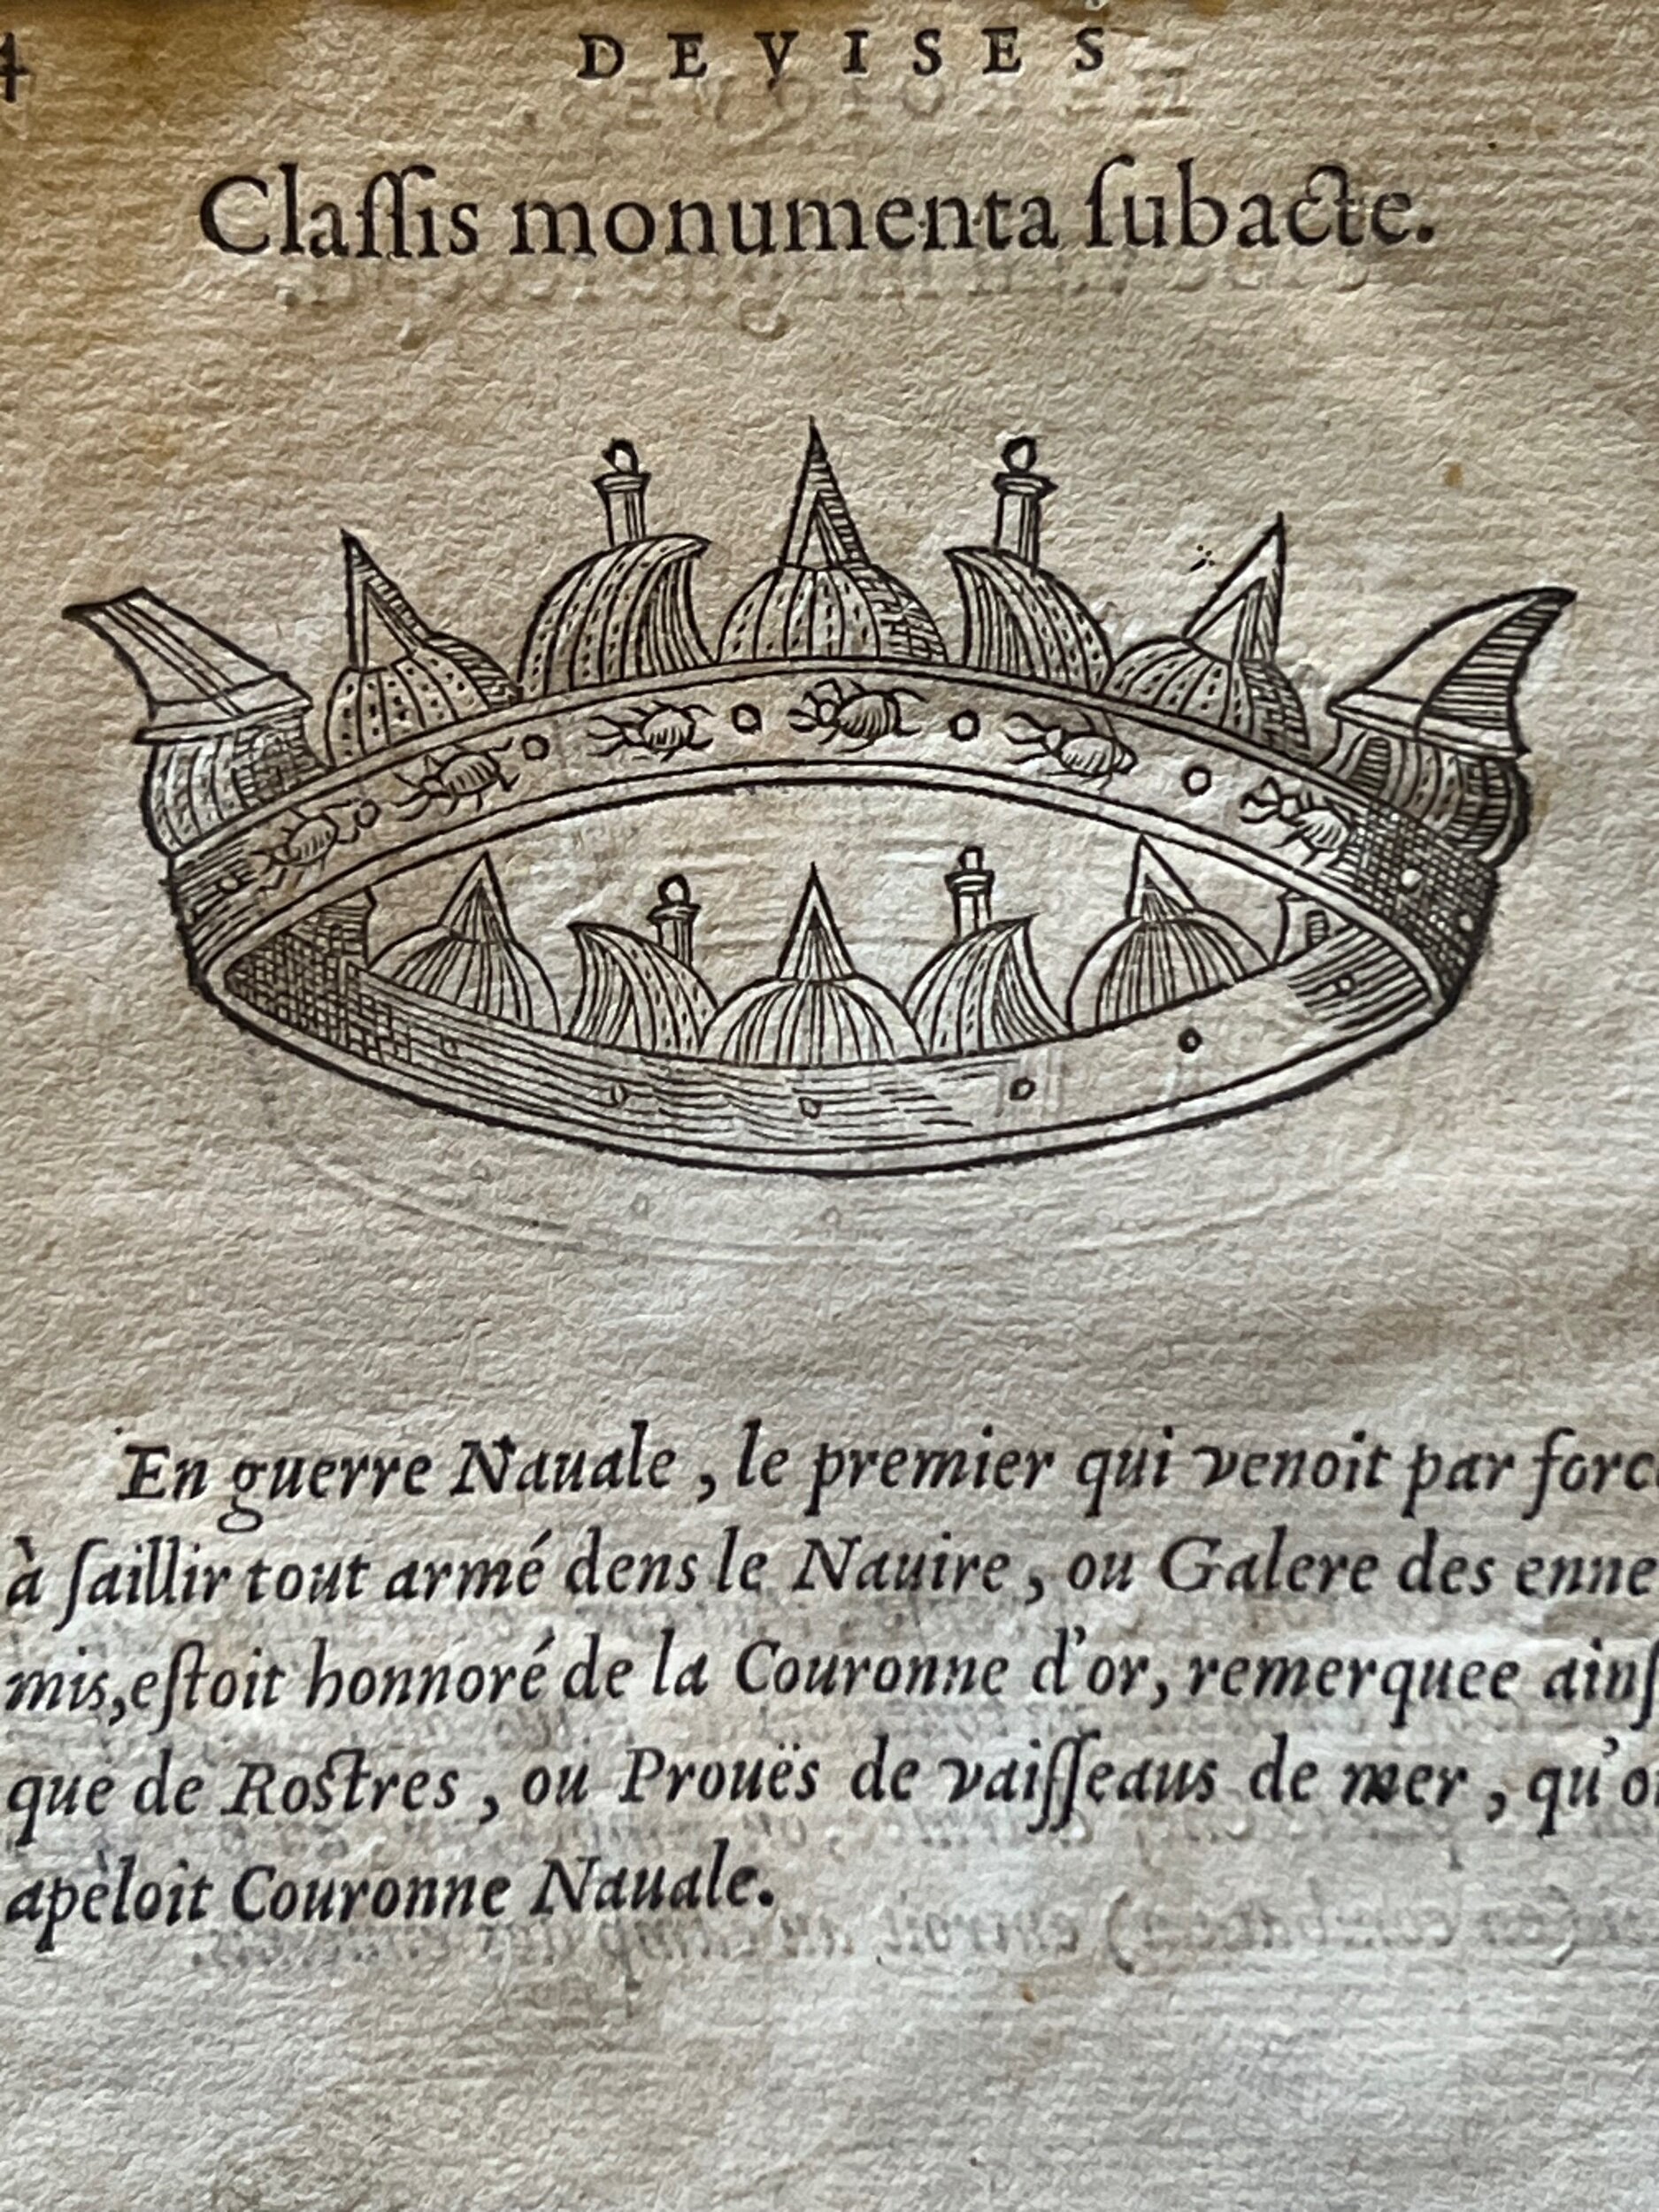 4 DEVISES
Claſſis monumenta ſubacte.
En guerre Nauale, le premier qui venoit par force
à ſaillir tout armé dens le Nauire, ou Galere des enne
mis, eſtoit honnoré de la Couronne d'or, remerquee ainſ
que de Roſtres, ou Prouës de vaiſſeaus de mer, qu'on
apèloit Couronne Nauale.